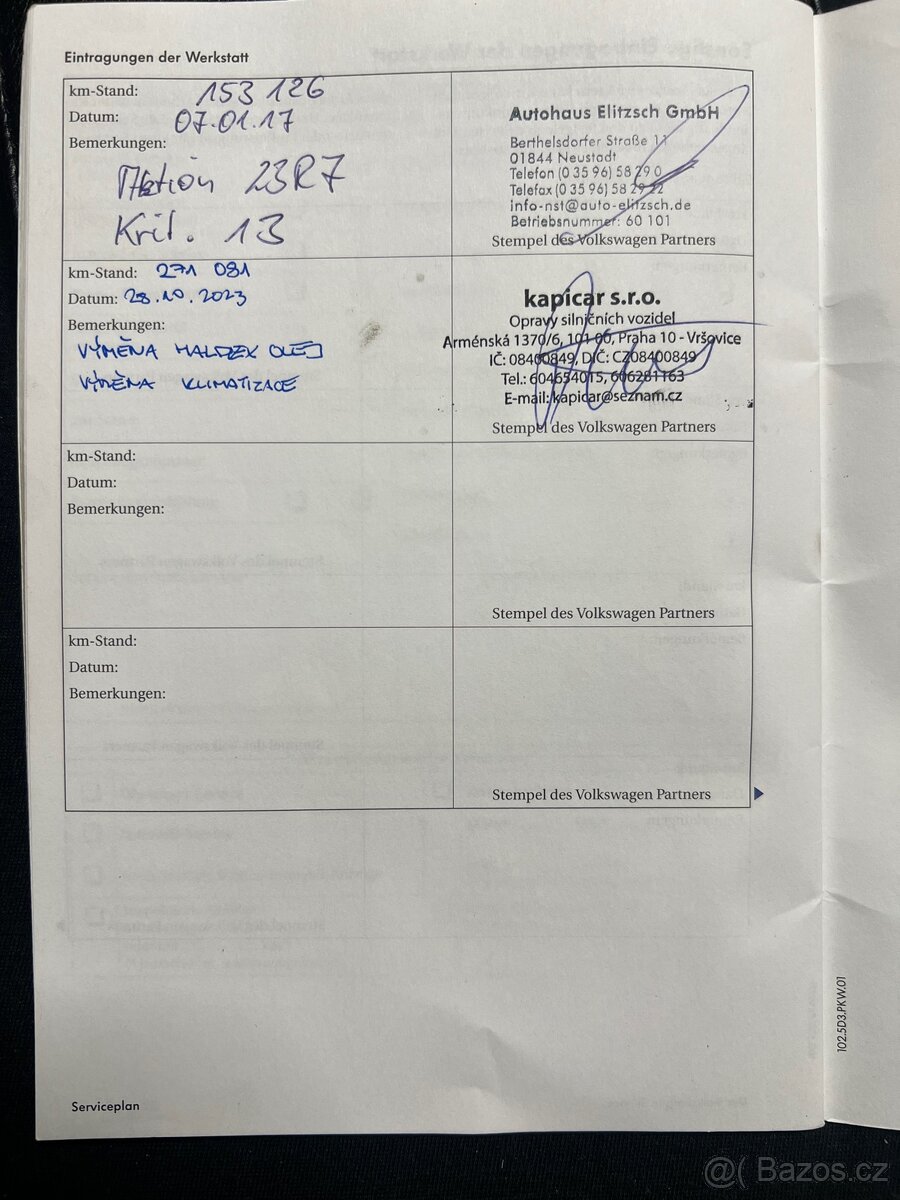 Eintragungen der Werkstatt
km-Stand: 153 126
Datum: 07.01.17
Bemerkungen:
Aktion 23R7
Krit. 13
Autohaus Elitzsch GmbH
Berthelsdorfer Straße 11
01844 Neustadt
Telefon (0 35 96) 58 29 0
Telefax (0 35 96) 58 29 22
info-nst@auto-elitzsch.de
Betriebsnummer: 60 101
Stempel des Volkswagen Partners
km-Stand: 271 081
Datum: 28.10.2023
Bemerkungen:
VÝMĚNA HALDEX OLEJ
VÝMĚNA KLIMATIZACE
kapicar s.r.o.
Opravy silničních vozidel
Arménská 1370/6, 101 00, Praha 10 - Vršovice
IČ: 08400849, DIČ: CZ08400849
Tel.: 604654015, 606281163
E-mail: kapicar@seznam.cz
Stempel des Volkswagen Partners
km-Stand:
Datum:
Bemerkungen:
Stempel des Volkswagen Partners
km-Stand:
Datum:
Bemerkungen:
Stempel des Volkswagen Partners
102.5D3.PKW.01
Serviceplan
@( Bazos.cz